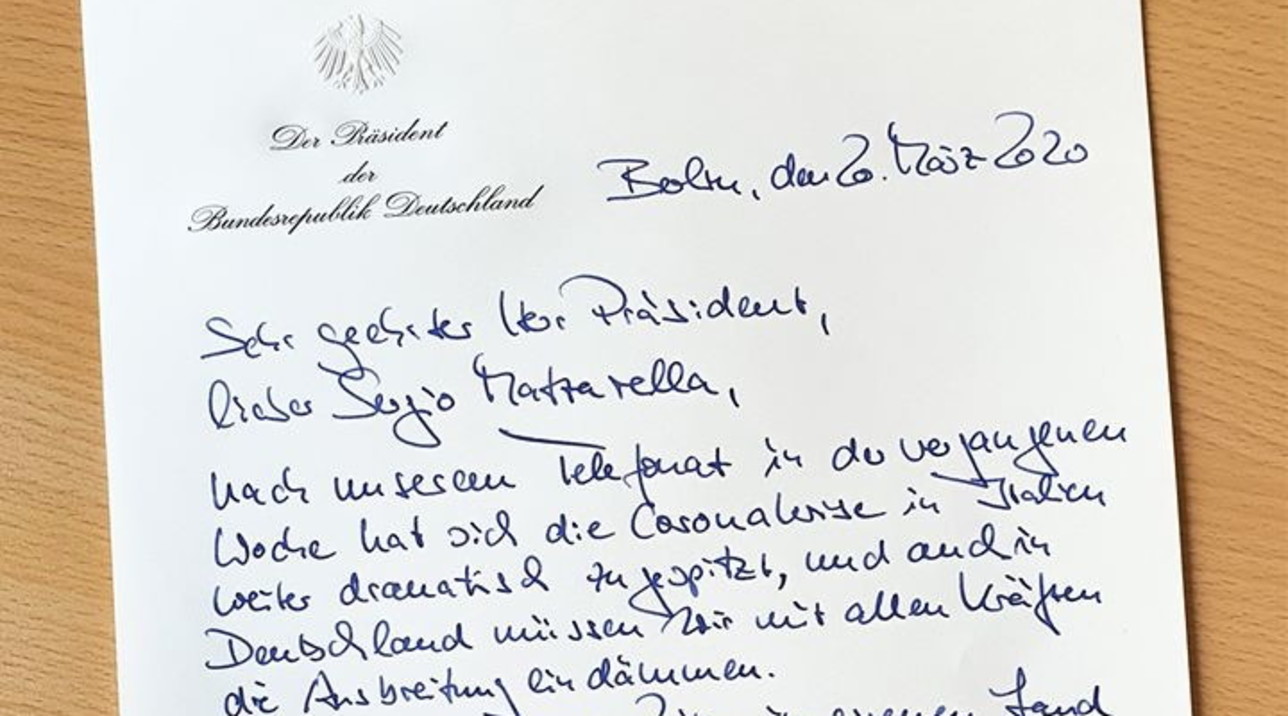 Der Präsident
der
Bundesrepublik Deutschland
Berlin, den 20. März 2020
Sehr geehrter Herr Präsident,
lieber Sergio Mattarella,
nach unserem Telefonat in der vergangenen
Woche hat sich die Coronakrise in Italien
weiter dramatisch zugespitzt, und auch in
Deutschland müssen wir mit allen Kräften
die Ausbreitung eindämmen.
in Land